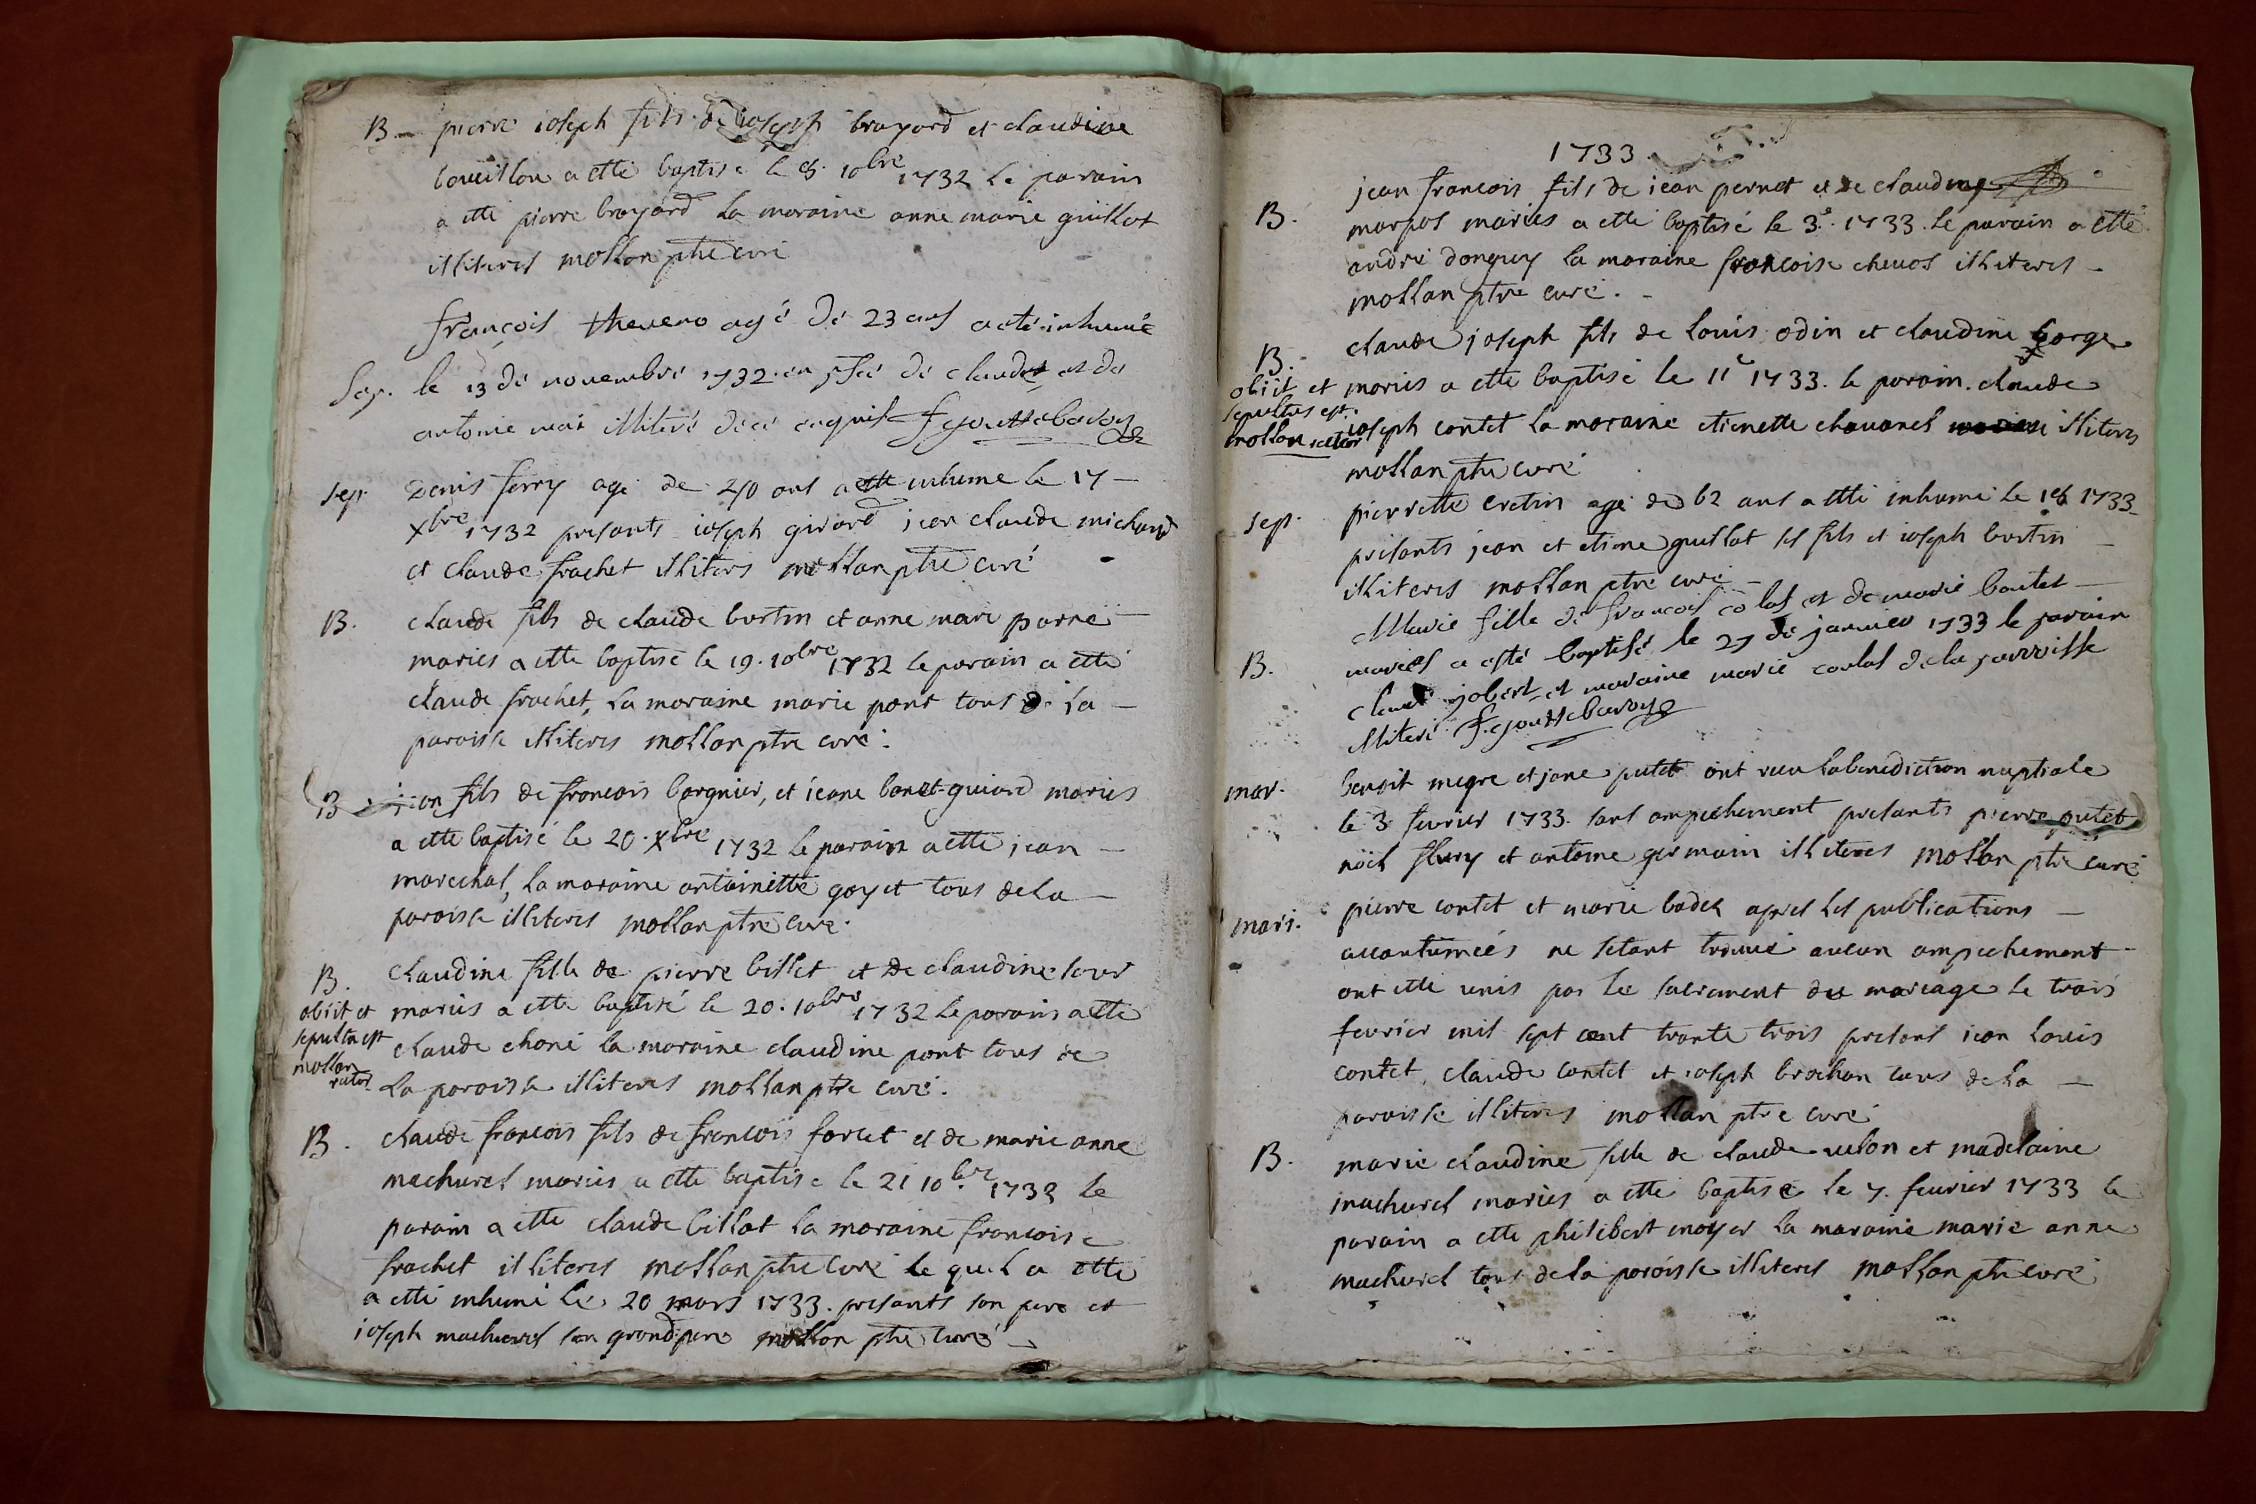 B. pierre ioseph fils de ioseph brayard et claudine
a etté baptisé le 8. 10bre 1732 le parain
a etté pierre brayard la maraine anne marie guillot
illiterés mollan ptre curé
françois theveno agé de 23 ans a eté inhumé
Sep. le 13 de novembre 1732 en psce de claude et de
antoine illiteré de ce enquis
sep. Denis ferry agé de 40 ans a etté inhumé le 17
xbre 1732 presants ioseph girard jean claude michaud
et claude frachet illiterés mollan ptre curé
B. claude fils de claude burtin et anne marie parne
mariés a etté baptisé le 19. 10bre 1732 le parain a etté
claude frachet, la maraine marie pont tous de la
paroisse illiterés mollan ptre curé.
B jean fils de francois borgnier, et jeane guiard mariés
a etté baptisé le 20. xbre 1732 le parain a etté jean
marechal, la maraine antoinette goyet tous de la
paroisse illiterés mollan ptre curé.
B. claudine fille de pierre billet et de claudine
obiit et mariés a etté baptisé le 20. 10bre 1732 le parain a etté
sepulta est claude choné la maraine claudine pont tous de
mollan rector la paroisse illiterés mollan ptre curé.
B. claude francois fils de francois foret et de marie anne
machurel mariés a etté baptisé le 21 10bre 1732 le
parain a etté claude billot la maraine francoise
frachet illiterés mollan ptre curé le quel a etté
a etté inhumé le 20 mars 1733. presants son pere et
ioseph machurel son grandpere mollan ptre curé
1733.
jean francois fils de jean pernet et de claudine
B. marpos mariés a etté baptisé le 3e. 1733. le parain a etté
andré donguy la maraine francoise chevos illiterés
mollan ptre curé.
claude joseph fils de louis odin et claudine gorge
B.
obiit et mariés a etté baptisé le 11e 1733. le parain. claude
sepultus est.
mollan rector ioseph contet la maraine etienette chavanel illiterés
mollan ptre curé
pierrette cretin agé de 62 ans a etté inhumé le 18 1733
sep. presants jean et etiene guillot ses fils et ioseph burtin
illiterés mollan ptre curé
Marie fille de francois colas et de marie boutet
B. mariés a esté baptisé le 27 de janvier 1733 le parain
claude jobert et maraine marie coulas de la parroisse
illiteré
mar. benoit megre et jane putet ont receu la benediction nuptiale
le 3 fevrier 1733. sans ampechement presants pierre putet
noël flury et antoine germain illiterés mollan ptre curé
mari. pierre contet et marie badez apres les publications
accoutumées ne setant trouvé aucun ampechement
ont etté unis par le sacrement du mariage le trois
fevrier mil sept cent trante trois presans jean louis
contet, claude contet et ioseph brochan tous de la
paroisse illiterés mollan ptre curé
B. marie claudine fille de claude vulon et madelaine
machurel mariés a etté baptisé le 7. fevrier 1733 le
parain a etté philibert moyer la maraine marie anne
machurel tous de la paroisse illiterés mollan ptre curé